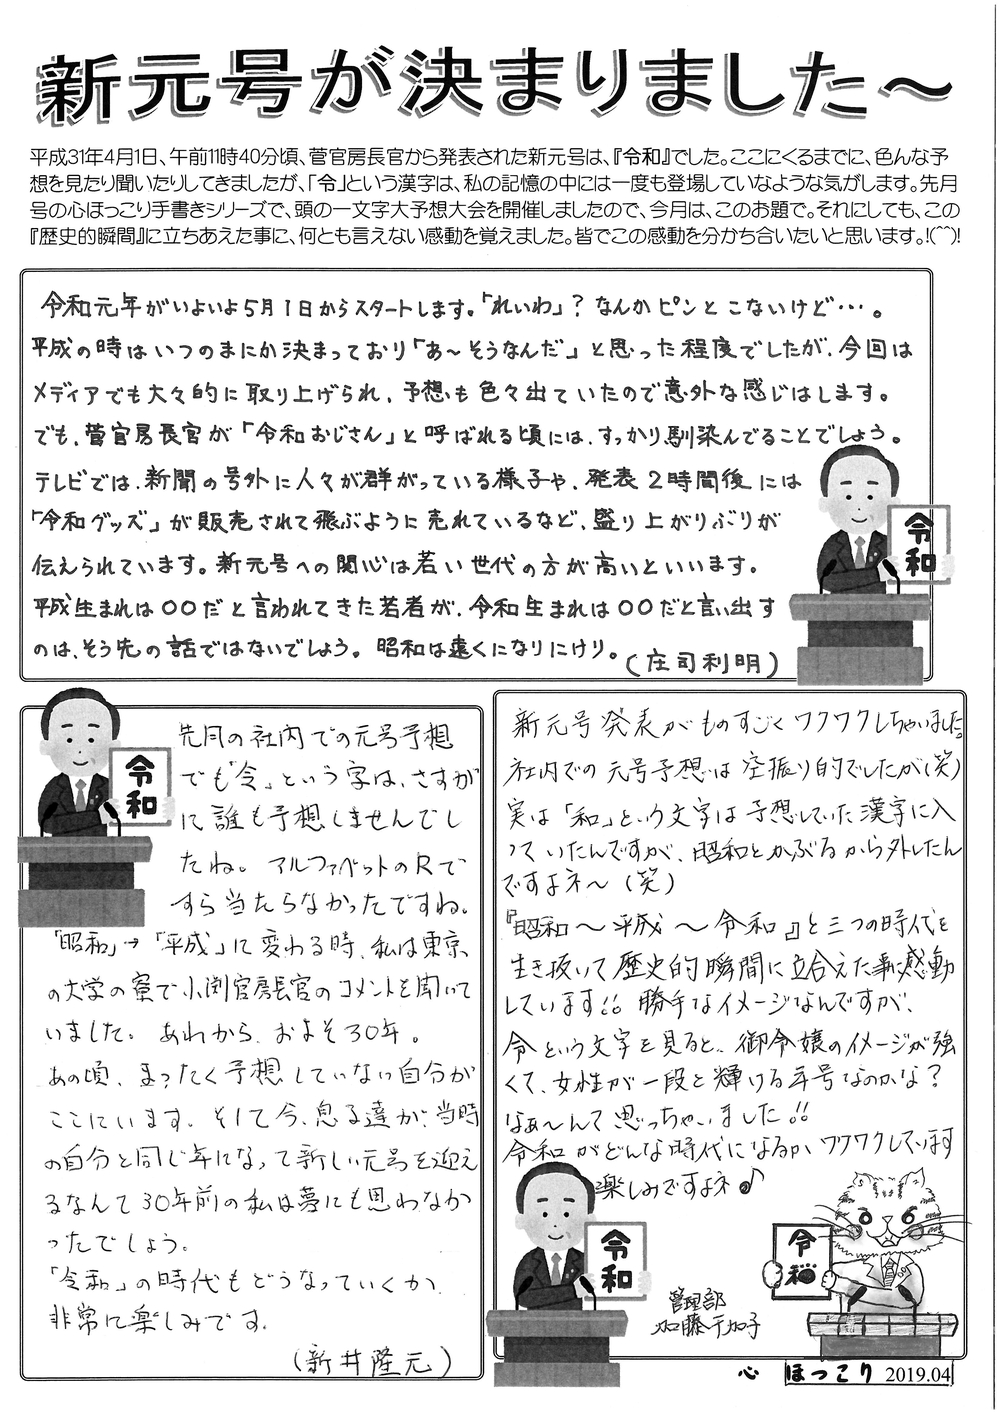 新元号が決まりました～
平成31年4月1日、午前11時40分頃、菅官房長官から発表された新元号は、『令和』でした。ここにくるまでに、色んな予
想を見たり聞いたりしてきましたが、「令」という漢字は、私の記憶の中には一度も登場していなような気がします。先月
号の心ほっこり手書きシリーズで、頭の一文字大予想大会を開催しましたので、今月は、このお題で。それにしても、この
『歴史的瞬間』に立ちあえた事に、何とも言えない感動を覚えました。皆でこの感動を分かち合いたいと思います。!(^^)!
令和元年がいよいよ5月1日からスタートします。「れいわ」？なんかピンとこないけど…。
平成の時はいつのまにか決まっており「あ～そうなんだ」と思った程度でしたが、今回は
メディアでも大々的に取り上げられ、予想も色々出ていたので意外な感じはします。
でも、菅官房長官が「令和おじさん」と呼ばれる頃には、すっかり馴染んでることでしょう。
テレビでは、新聞の号外に人々が群がっている様子や、発表2時間後には
「令和グッズ」が販売されて飛ぶように売れているなど、盛り上がりぶりが
伝えられています。新元号への関心は若い世代の方が高いといいます。
平成生まれは〇〇だと言われてきた若者が、令和生まれは〇〇だと言い出す
のは、そう先の話ではないでしょう。昭和は遠くになりにけり。
(庄司利明)
令和
先月の社内での元号予想
でも「令」という字は、さすが
に誰も予想しませんでし
たね。アルファベットのRで
すら当たらなかったですね。
「昭和」→「平成」に変わる時、私は東京
の大学の寮で小渕官房長官のコメントを聞いて
いました。あれから、およそ30年。
あの頃、まったく予想していない自分が
ここにいます。そして今、息子達が、当時
の自分と同じ年になって新しい元号を迎え
るなんて30年前の私は夢にも思わなか
ったでしょう。
「令和」の時代もどうなっていくか
非常に楽しみです。
(新井隆元)
令和
新元号発表がものすごくワクワクしちゃいました
社内での元号予想は空振り的でしたが(笑)
実は「和」という文字は予想していた漢字に入
っていたんですが、昭和とかぶるから外したん
ですよネ～(笑)
『昭和～平成～令和』と三つの時代を
生き抜いて歴史的瞬間に立合えた事に感動
しています!! 勝手なイメージなんですが、
令という文字を見ると、御令嬢のイメージが強
くて、女性が一段と輝ける年号なのかな？
なぁ～んて思っちゃいました!!
令和がどんな時代になるかワクワクしています
楽しみですよネ♪
令和
令和
管理部
加藤
心ほっこり 2019.04